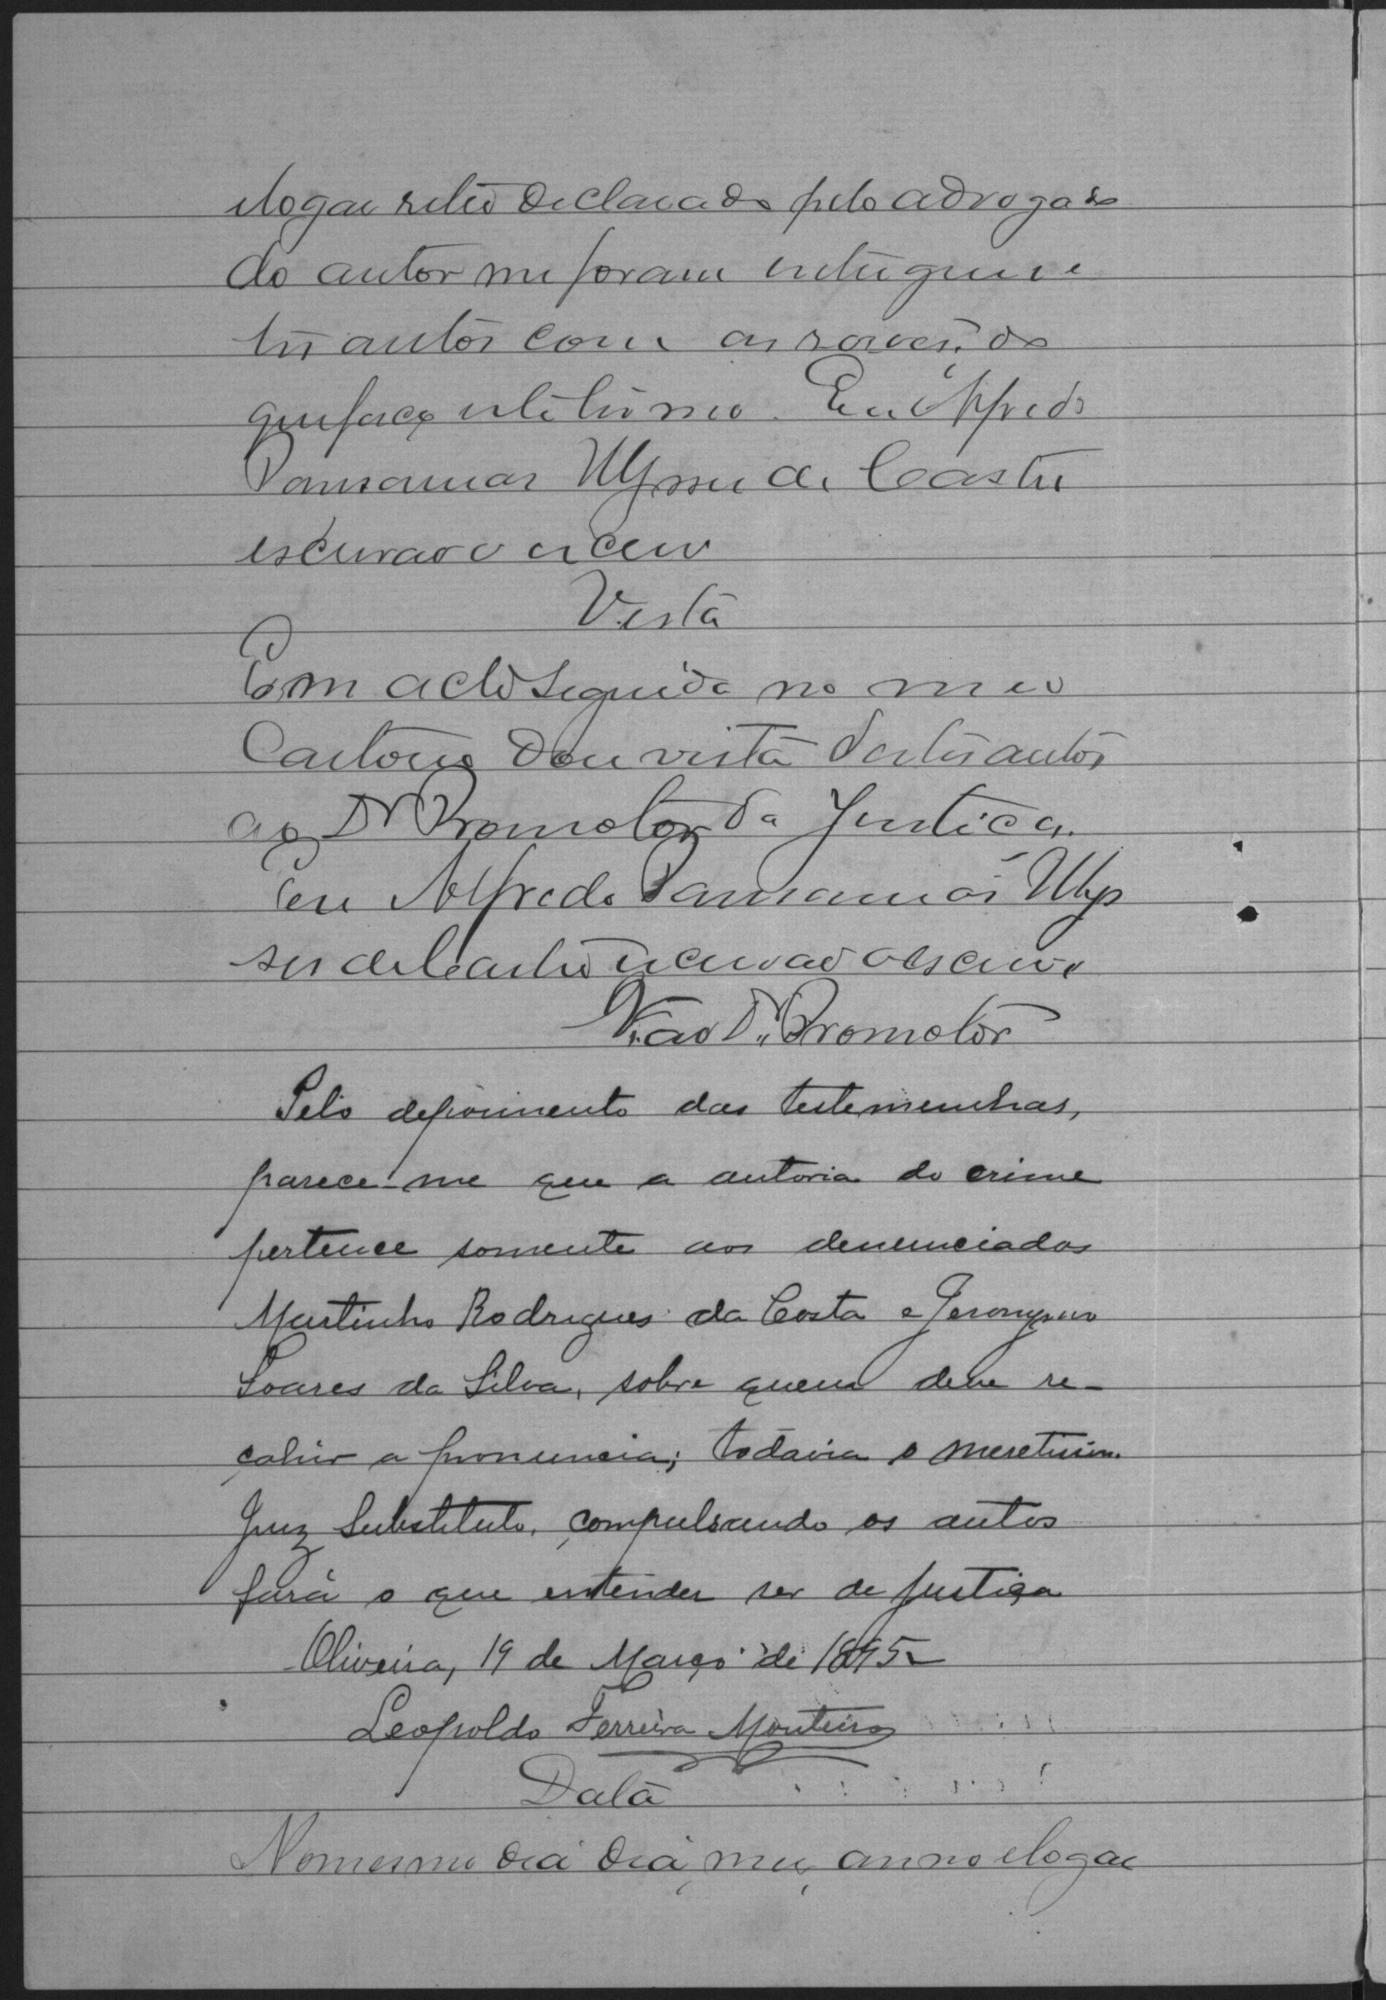 e logar retro declarado pelo advogado
do autor me foram entregues es
tes autos com as rasões, do
que faço este termo. Eu Alfredo
Parnamas Ulysses de Castro
escrivão o escrevi
Vista
Em acto seguida no meu
Cartorio dou vista destes autos
ao Dr Promotor da Justiça.
Eu Alfredo Parnamas Ulys
ses de Castro escrivão o escrevi
V. ao Dr. Promotor
Pelo depoimento das testemunhas,
parece-me que a autoria do crime
pertence somente aos denunciados
Martinho Rodrigues da Costa e Jeronymo
Soares da Silva, sobre quem deve re-
cahir a pronuncia; todavia o meretissim.
Juiz Substituto, compulsando os autos
fará o que entender ser de justiça
Oliveira, 19 de Março de 1895
Leopoldo Ferreira Monteiro
Data
No mesmo dia dia, mez, anno e logar